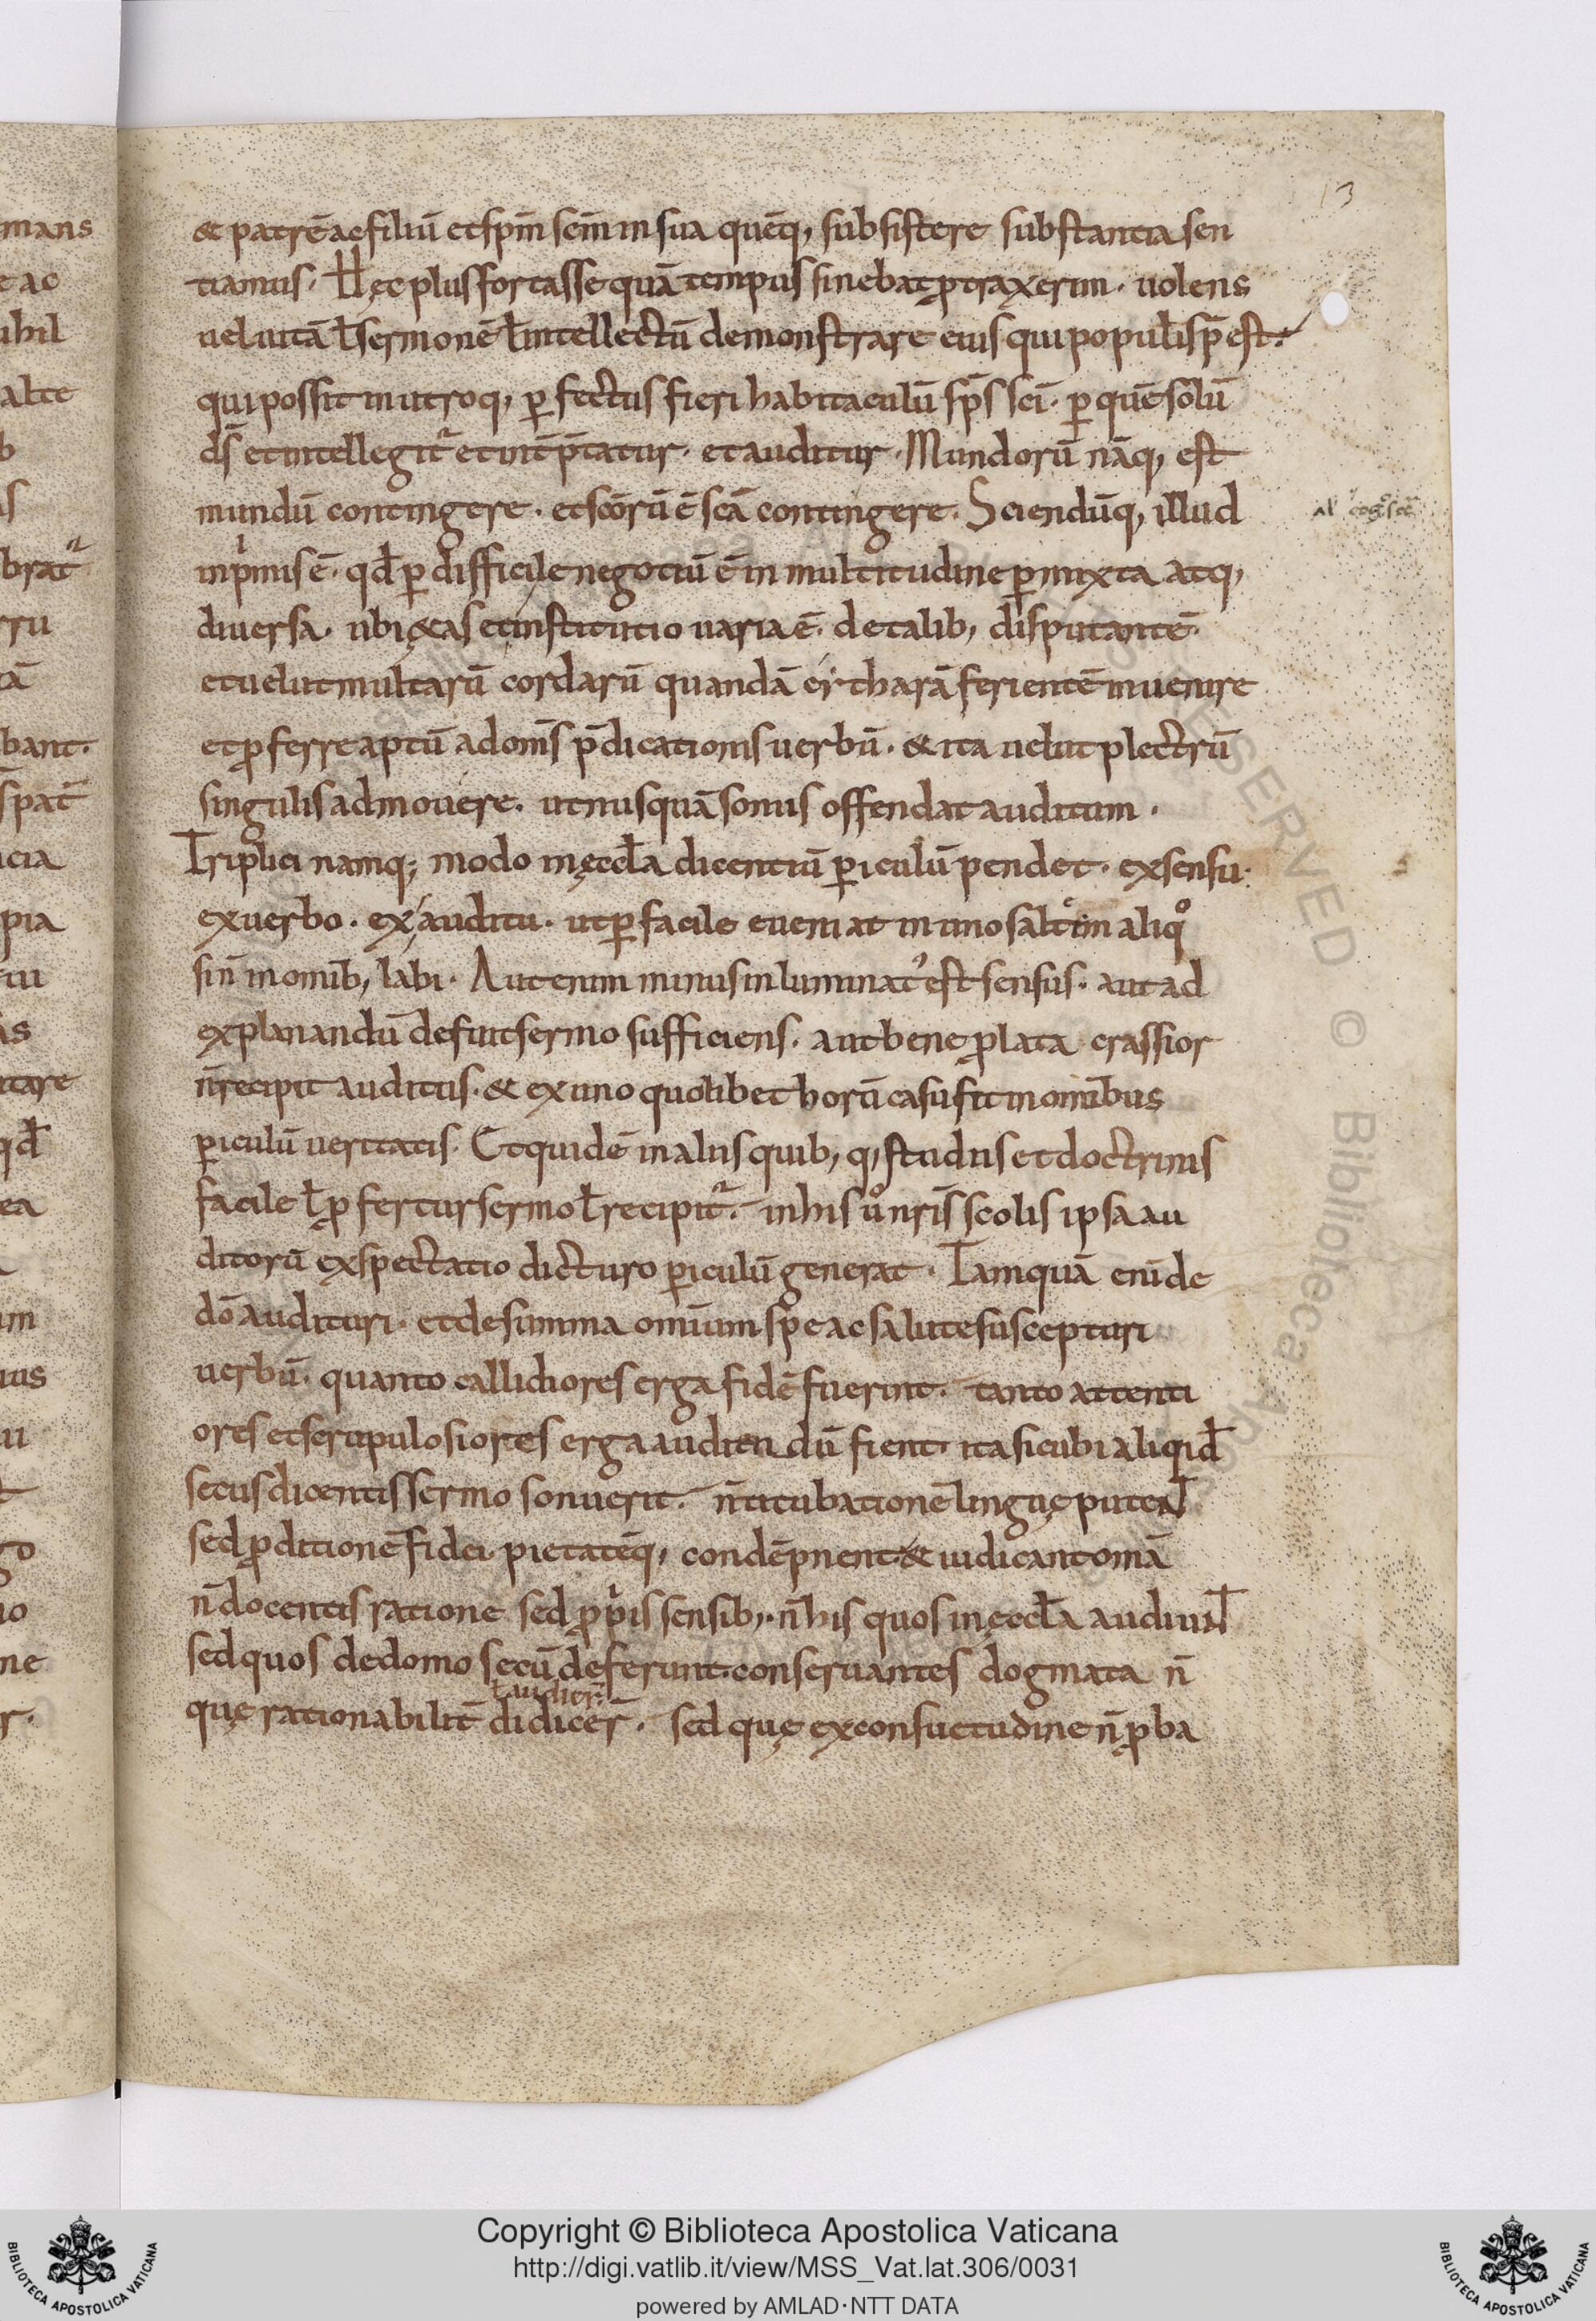 13
& patrē ac filiū et spm̄ scm̄ in sua quēq; subsistere substantia sen
tiamus. Hęc plus fortasse quā tempus sinebat ꝓtraxerim. uolens
uel uitā ł sermonē ł intellectū demonstrare eius qui populis p̄est.
qui possit in utroq; ꝑfectus fieri habitaculū sp̄s sc̄i. ꝑ quē solū
ds̄ et intellegit᷑ et int̄p̄tatur. et auditur. Mundorū nāq; est
mundū contingere. et sc̄orū ē sc̄ā contingere. Sciendūq; illud
al cog
inpͥmis ē. qd̄ ꝑdifficile negotiū ē in multitudine ꝑmixta atq;
diuersa. ubi ę&as et institutio uaria ē. de talib; disputantē.
et uelut multarū cordarū quandā cytharā ferientē inuenire
et ꝓferre aptū ad om̄s p̄dicationis uerbū. & ita uelut plectrū
singulis admouere. ut nusquā sonus offendat auditum.
Triplici namq; modo in ęccl̄a dicentiū ꝑiculū pendet. ex sensu.
ex uerbo. ex auditu. ut ꝑfacile eueniat in uno saltem aliqͦ
sin̄ in omīb; labi. Aut enim minus inluminat᾽ est sensus. aut ad
explanandū defuit sermo sufficiens. aut bene ꝓlata crassior
n̄ recipit auditus. & ex uno quolibet horū casu fit in omībus
ꝑiculū ueritatis. Et quidē in aliis quib; q; studiis et doctrinis
facile ł ꝓfertur sermo ł recipit᷑. in his uͦ nr̄is scolis ipsa au
ditorū exspectatio dicturo ꝑiculū generat. Tamquā eni de
dō audituri. et de summa omium spe ac salute suscepturi
uerbū. quanto callidiores erga fidē fuerint. tanto attenti
ores et scrupulosiores erga audiendū fient. ita sicubi aliqid̄
secus dicentis sermo sonuerit. n̄ titubationē linguę putent
sed ꝓditionē fidei pietatēq; condēpnent & iudicant omā
n̄ docentis ratione sed ꝓpͥis sensib;. n̄ his quos in ęccl̄a audiunt
sed quos de domo secū deferunt. conseruantes dogmata n̄
ł audier̄
quę rationabilit̄ didicer̄. sed quę ex consuetudine n̄ ꝓba
Copyright © Biblioteca Apostolica Vaticana
http://digi.vatlib.it/view/MSS_Vat.lat.306/0031
powered by AMLAD·NTT DATA
BIBLIOTECA APOSTOLICA VATICANA
BIBLIOTECA APOSTOLICA VATICANA